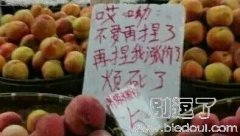 哎呦
不要再捏了
再捏我涨价了
烦死了
别逗了
www.biedoul.com